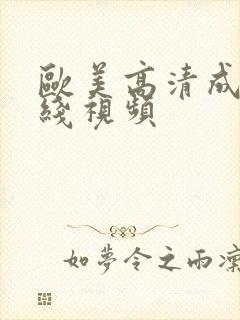 歐美高清成
綫視頻
如夢令之雨濛